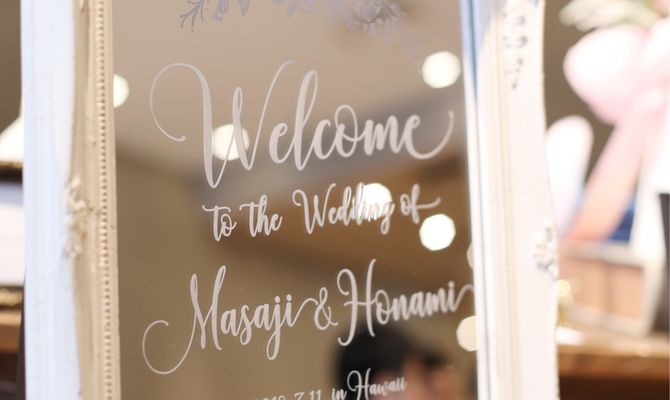 Welcome
to the Wedding of
Masaji & Honami
7.11. in Hawaii